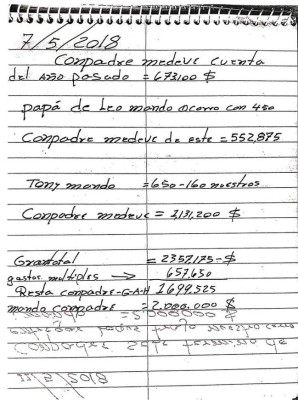 7/5/2018
Conpadre medeve cuenta
del Año pasado = 673100 $
papá de Leo mando ocorro con 450
Conpadre medeve de este = 552,875
Tony mando = 650-160 nuestros
Conpadre medeve = 1,131,200 $
Grantotal = 2357,175-$
gastos multiples → 657.650
Resta conpadre-G-A-H 1699.525
mando conpadre = 2.000.000 $
11/5/2018